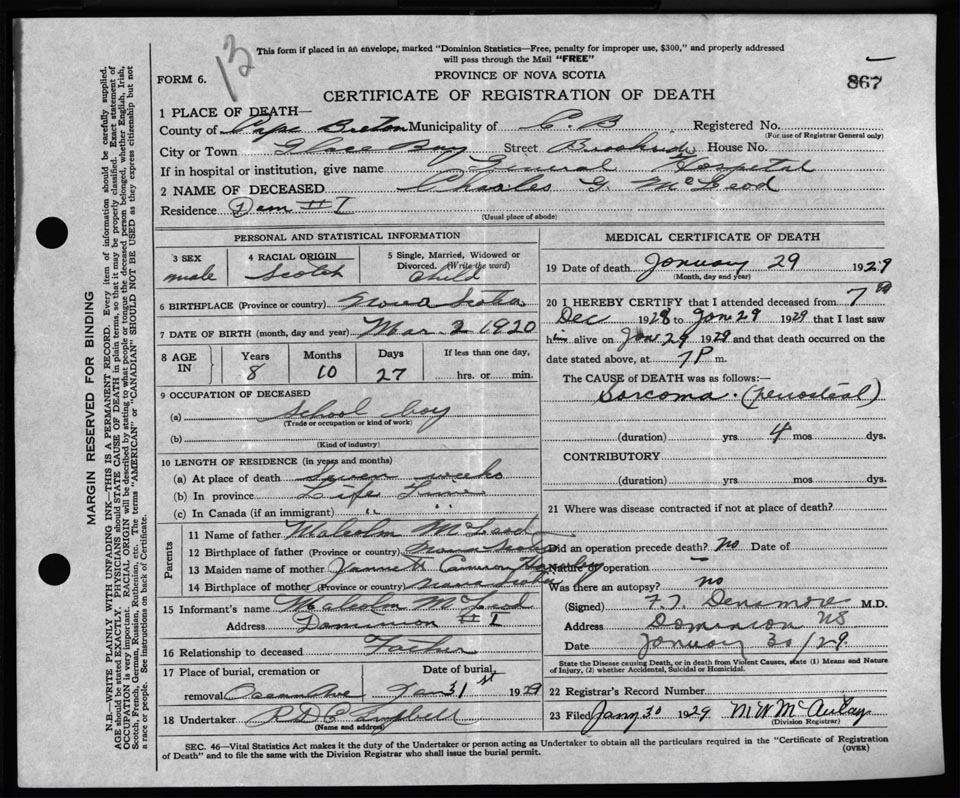 13
This form if placed in an envelope, marked "Dominion Statistics—Free, penalty for improper use, $300," and properly addressed
will pass through the Mail "FREE"
FORM 6.
PROVINCE OF NOVA SCOTIA
867
CERTIFICATE OF REGISTRATION OF DEATH
1 PLACE OF DEATH—
County of Cape Breton Municipality of C. B Registered No.
(For use of Registrar General only)
City or Town Glace Bay Street Brookside House No.
If in hospital or institution, give name General Hospital
2 NAME OF DECEASED Charles G. McLeod
Residence Dom #1
(Usual place of abode)
PERSONAL AND STATISTICAL INFORMATION
3 SEX male
4 RACIAL ORIGIN Scotch
5 Single, Married, Widowed or Divorced. (Write the word) Child
6 BIRTHPLACE (Province or country) Nova Scotia
7 DATE OF BIRTH (month, day and year) Mar. 2 1920
8 AGE IN Years 8 Months 10 Days 27 If less than one day, hrs. or min.
9 OCCUPATION OF DECEASED
(a) School boy
(Trade or occupation or kind of work)
(b)
(Kind of industry)
10 LENGTH OF RESIDENCE (in years and months)
(a) At place of death Seven weeks
(b) In province Life Time
(c) In Canada (if an immigrant) " "
Parents
11 Name of father Malcolm McLeod
12 Birthplace of father (Province or country) Nova Scotia
13 Maiden name of mother Cameron
14 Birthplace of mother (Province or country) Nova Scotia
15 Informant's name Malcolm McLeod
Address Dominion #1
16 Relationship to deceased Father
17 Place of burial, cremation or Date of burial
removal Jan 31st 1929
18 Undertaker R D Campbell
(Name and address)
MEDICAL CERTIFICATE OF DEATH
19 Date of death January 29 1929
(Month, day and year)
20 I HEREBY CERTIFY that I attended deceased from 7th
Dec 1928 to Jan 29 1929 that I last saw
him alive on Jan 29 1929 and that death occurred on the
date stated above, at 7 P m.
The CAUSE of DEATH was as follows:—
Sarcoma. (periosteal)
(duration) yrs 4 mos dys.
CONTRIBUTORY
(duration) yrs. mos dys.
21 Where was disease contracted if not at place of death?
Did an operation precede death? No Date of
Nature of operation —
Was there an autopsy? no
(Signed) F. T. Densmore M.D.
Address Dominion NS
Date January 30/29
State the Disease causing Death, or in death from Violent Causes, state (1) Means and Nature
of Injury, (2) whether Accidental, Suicidal or Homicidal.
22 Registrar's Record Number
23 Filed Jany 30 1929 M W McAulay
(Division Registrar)
SEC. 46—Vital Statistics Act makes it the duty of the Undertaker or person acting as Undertaker to obtain all the particulars required in the "Certificate of Registration
of Death" and to file the same with the Division Registrar who shall issue the burial permit.
(OVER)
MARGIN RESERVED FOR BINDING
N.B.—WRITE PLAINLY WITH UNFADING INK—THIS IS A PERMANENT RECORD. Every item of information should be carefully supplied.
AGE should be stated EXACTLY. PHYSICIANS should STATE CAUSE OF DEATH in plain terms, so that it may be properly classified. Exact statement of
OCCUPATION is very important. RACIAL ORIGIN will be described by stating to what people or tongue the deceased person belonged, whether English, Irish,
Scotch, French, German, Russian, Ruthenian, etc. The terms "AMERICAN" or "CANADIAN" SHOULD NOT BE USED as they express citizenship but not
a race or people. See instructions on back of Certificate.